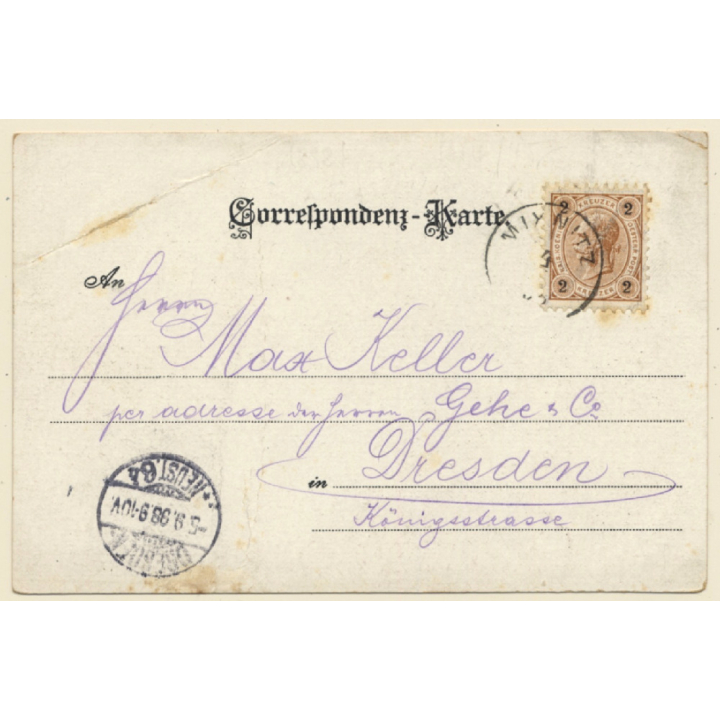 Correspondenz-Karte
2 KREUZER 2
2 KREUZER 2
An Herrn
Max Keller
per adresse der Herren Gehe & Co
in Dresden
Königsstrasse
NEUST. 6
5.9.98 9-10V